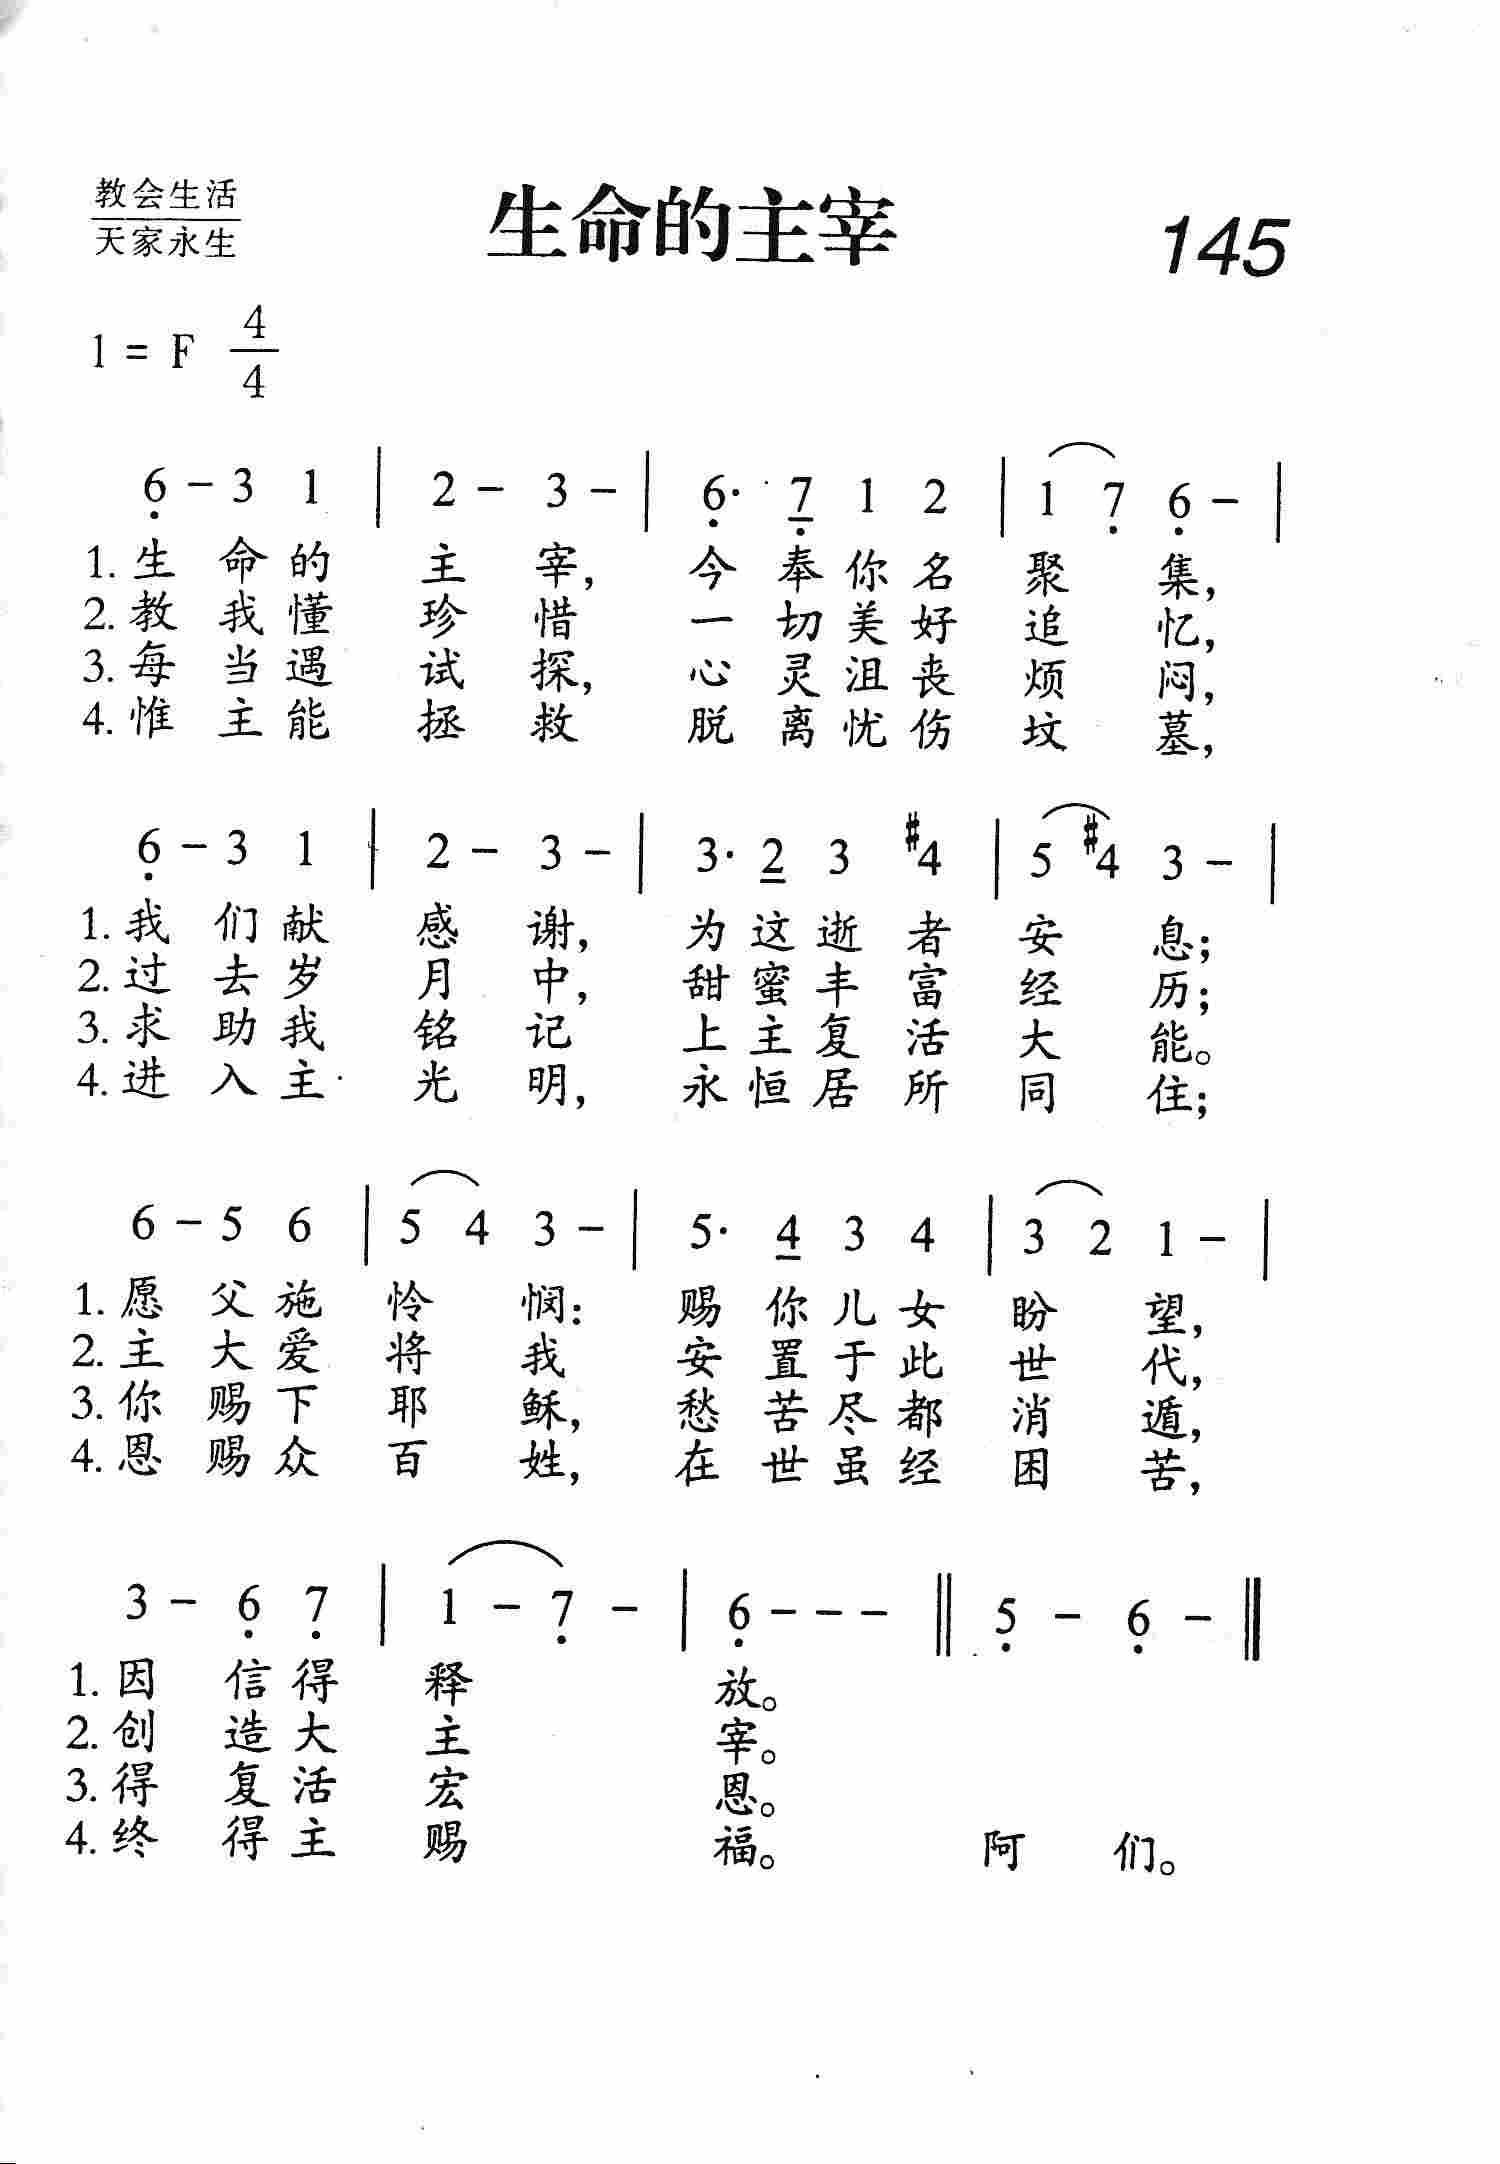 教会生活
天家永生
生命的主宰
145
1 = F 4/4
6̣ - 3 1 | 2 - 3 - | 6̣· 7̣ 1 2 | 1 7̣ 6̣ - |
1. 生 命 的 主 宰， 今 奉 你 名 聚 集，
2. 教 我 懂 珍 惜 一 切 美 好 追 忆，
3. 每 当 遇 试 探， 心 灵 沮 丧 烦 闷，
4. 惟 主 能 拯 救 脱 离 忧 伤 坟 墓，
6̣ - 3 1 | 2 - 3 - | 3· 2 3 #4 | 5 #4 3 - |
1. 我 们 献 感 谢， 为 这 逝 者 安 息；
2. 过 去 岁 月 中， 甜 蜜 丰 富 经 历；
3. 求 助 我 铭 记 上 主 复 活 大 能。
4. 进 入 主 光 明， 永 恒 居 所 同 住；
6 - 5 6 | 5 4 3 - | 5· 4 3 4 | 3 2 1 - |
1. 愿 父 施 怜 悯： 赐 你 儿 女 盼 望，
2. 主 大 爱 将 我 安 置 于 此 世 代，
3. 你 赐 下 耶 稣， 愁 苦 尽 都 消 遁，
4. 恩 赐 众 百 姓， 在 世 虽 经 困 苦，
3 - 6̣ 7̣ | 1 - 7̣ - | 6̣ - - - || 5̣ - 6̣ - ||
1. 因 信 得 释 放。
2. 创 造 大 主 宰。
3. 得 复 活 宏 恩。
4. 终 得 主 赐 福。 阿 们。